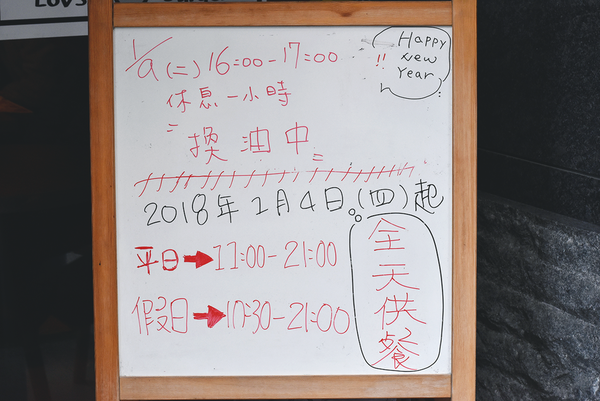 1/9 (二) 16:00-17:00
休息一小時
=換油中=
Happy
New
Year
!!
2018年1月4日(四)起
平日➡11:00-21:00
假日➡10:30-21:00
全天供餐